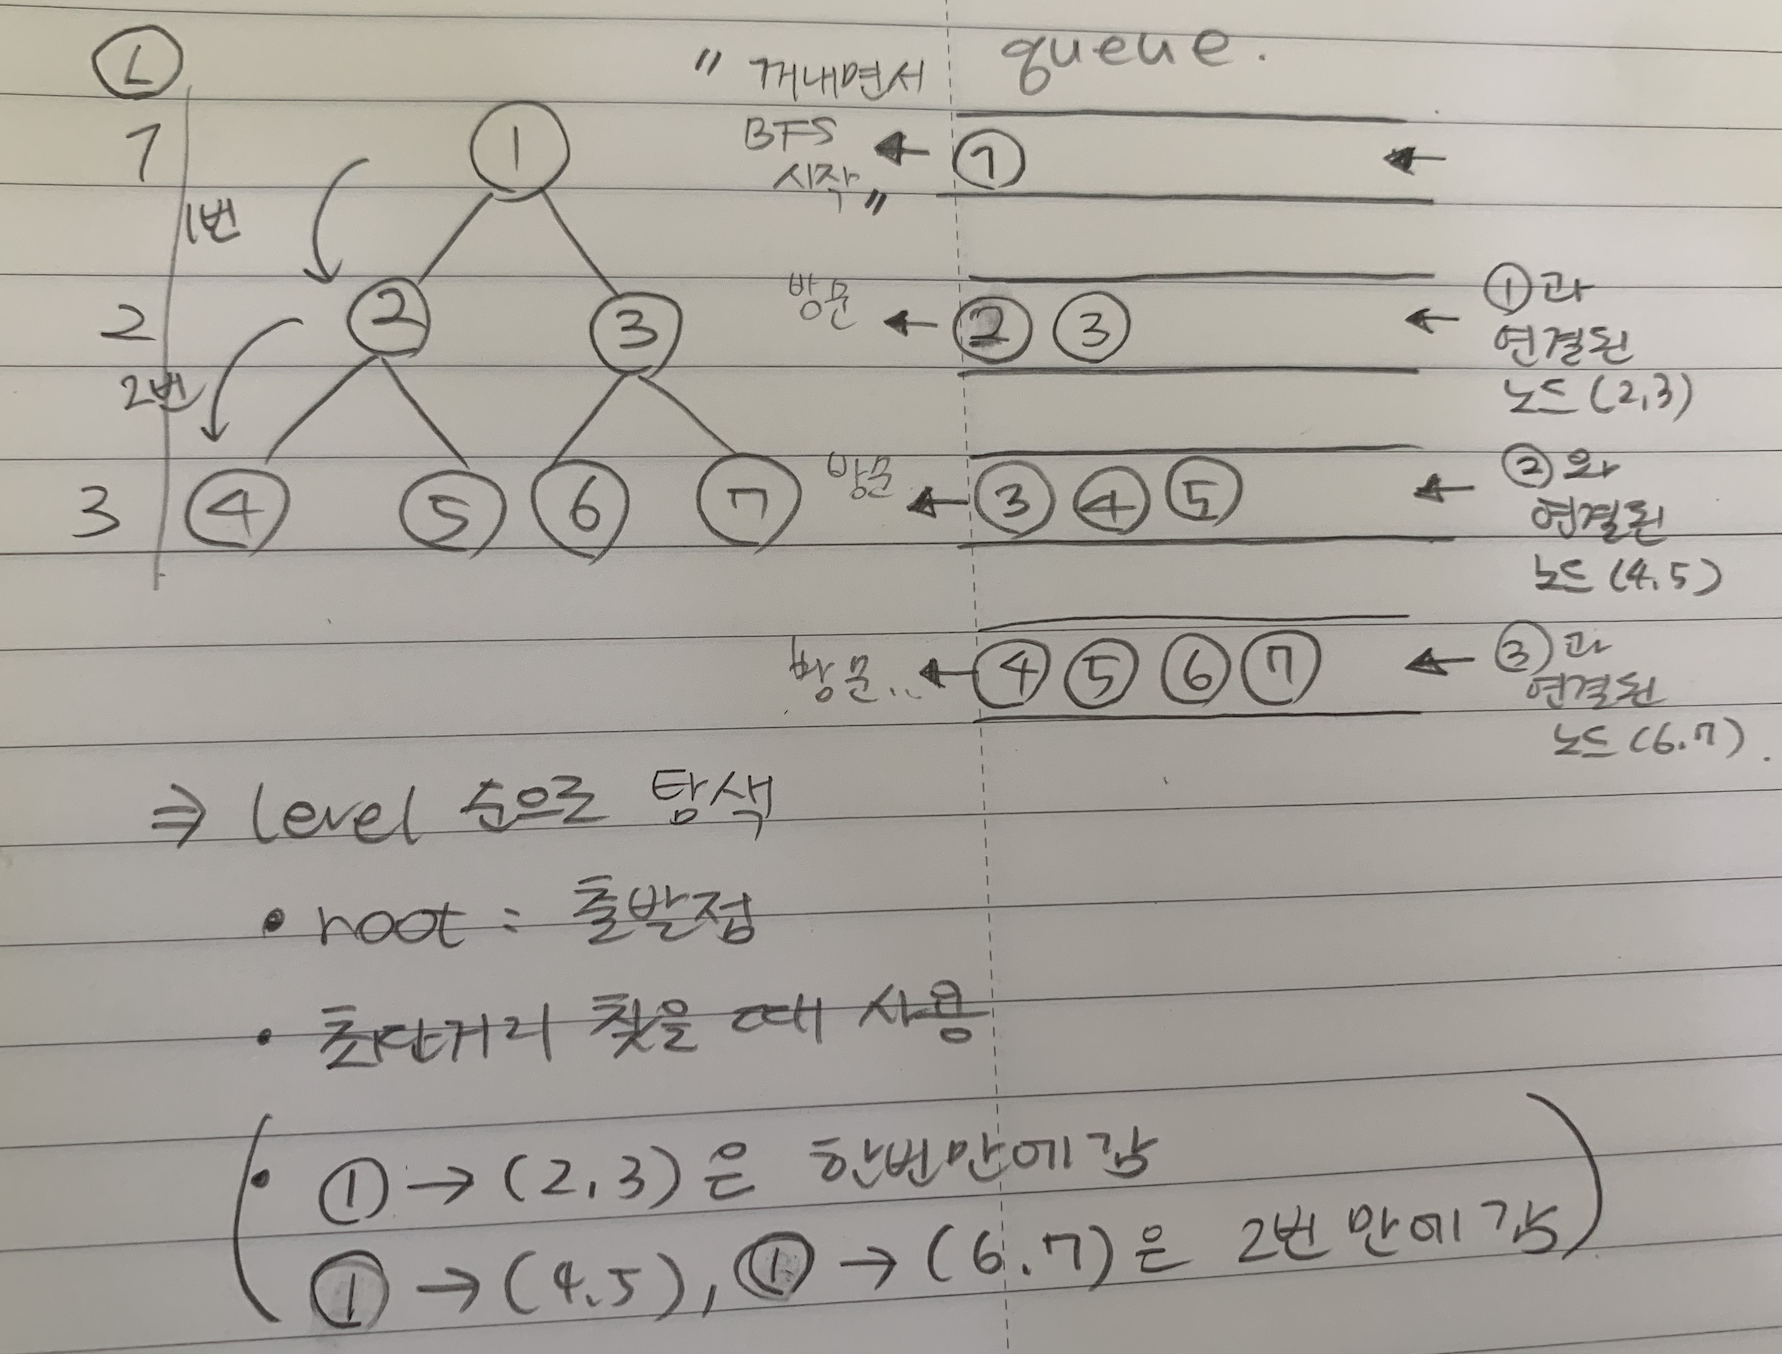 L
1
1번
2
2번
3
1
2 3
4 5 6 7
queue.
" 꺼내면서
BFS
시작 "
1
방문
2 3
①과
연결된
노드 (2,3)
방문
3 4 5
②와
연결된
노드 (4.5)
방문..
4 5 6 7
③과
연결된
노드 (6.7).
⇒ level 순으로 탐색
• root : 출발점
• 최단거리 찾을 때 사용
( • ① → (2,3)은 한번만에 감
① → (4.5), ① → (6.7)은 2번만에 감 )